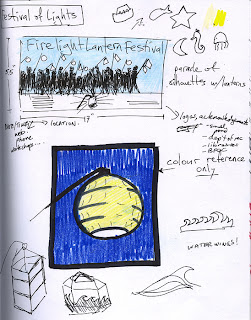 Festival of Lights
Firelight Lantern Festival
55"
17"
parade of
silhouettes w/lanterns
LOCATION.
phone
workshops...
logos, acknowledgements
colour reference
only
WATER WINGS!